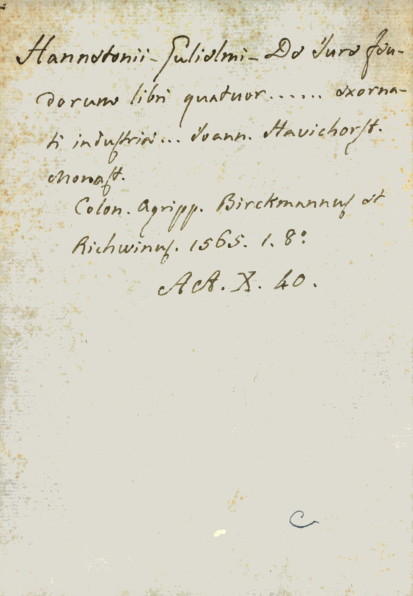 Hannetonii - Gulielmi - De Jure feu-
dorum libri quatuor...... exorna-
ti industria... Joann. Havichorst.
Monast.
Colon. Agripp. Birckmannus et
Richwinus. 1565. 1. 8º
AA. X. 40.
C